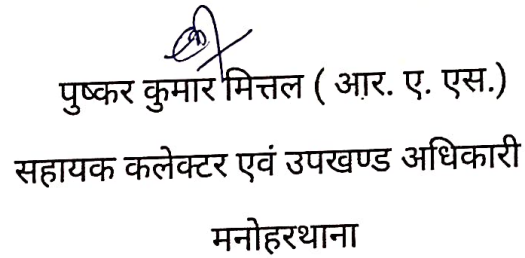 पुष्कर कुमार मित्तल ( आर. ए. एस.)
सहायक कलेक्टर एवं उपखण्ड अधिकारी
मनोहरथाना